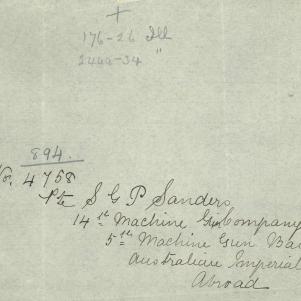 +
176-26 Ill
244a-34 "
894.
No. 4758
Pte S G P Sanders
14th Machine Gun Company
5th Machine Gun
Australian Imperial
Abroad